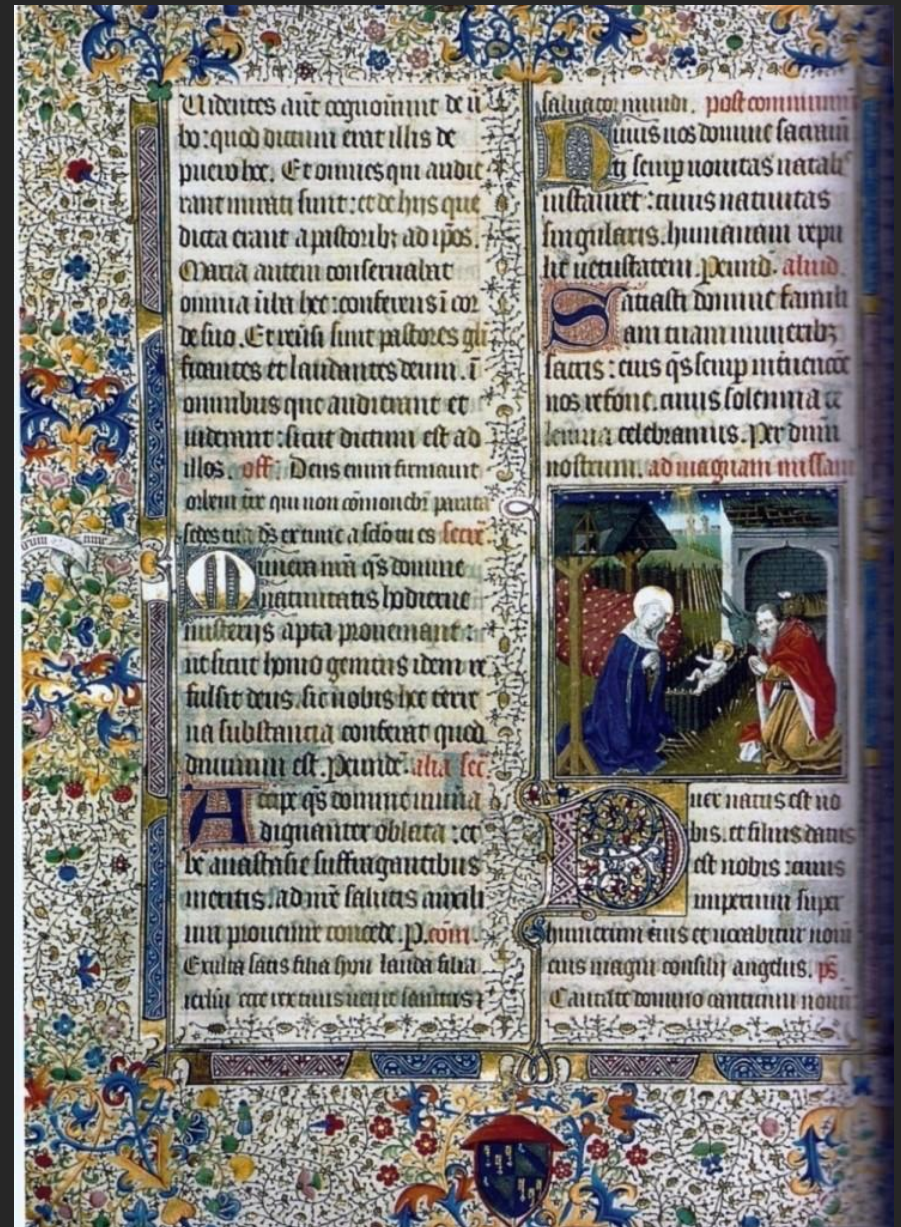 Uidentes aūt cognouerunt de ū
bo: quod dictum erat illis de
puero hoc. Et omnes qui audie
rant mirati sunt: et de hijs que
dicta erant a pastoribȝ ad ip̄os.
Maria autem conseruabat
omnia ūba hec: conferens ī cor
de suo. Et reūsi sunt pastores glī
ficantes et laudantes deum. ī
omnibus que audierant et
uiderant: sicut dictum est ad
illos. off. Deus enim firmauit
orbem tre qui non cōmouebr̄ parata
sedes tua ds̄ ex tunc a sclo tu es secret̄
Munera nr̄a qs̄ domine
natiuitatis hodierne
misterijs apta proueniant:
ut sicut homo genitus idem re
fulsit deus. sic nobis hec terre
na substantia conferat quod
diuinum est. Per eund. alia sec̄.
Accipe qs̄ domine munera
dignanter oblata: et
be anastasie suffragantibus
meritis. ad nr̄e salutis auxili
um prouenire concede. P. com̄.
Exulta satis filia syon lauda filia
ierl̄m ecce rex tuus uenit sanctus ⁊
saluator mundi. post commun
Huius nos domine sacram
ti semp nouitas natal
instauret: cuius natiuitas
singularis. humanam repu
lit uetustatem. Per eund. aliud.
Satiasti domine famili
am tuam muneribȝ
sacris: eius qs̄ semp
nos refoue. cuius solennia
celebramus. Per dnm̄
nostrum. ad magnam missam
Puer natus est no
bis. et filius datus
est nobis: cuius
imperium super
humerum eius et uocabitur nom̄
eius magni consilij angelus. ps̄.
Cantate domino canticum nouū